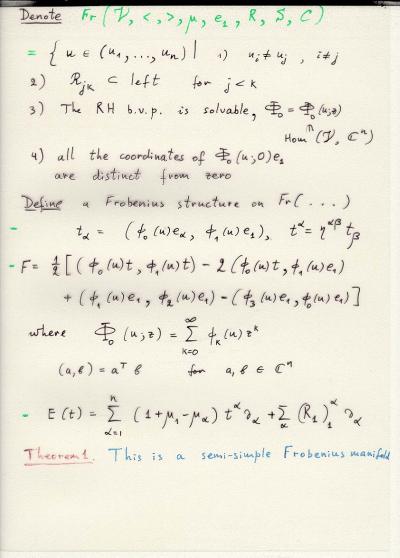 Denote Fr (V, < , >, μ, e₁, R, S, C)
= { u ∈ (u₁, ..., uₙ) | 1) uᵢ ≠ uⱼ, i ≠ j
2) R_{jk} ⊂ left for j < k
3) The RH b.v.p. is solvable, Φ₀ = Φ₀(u;z)
∩
Hom (V, ℂⁿ)
4) all the coordinates of Φ₀(u;0)e₁
are distinct from zero
Define a Frobenius structure on Fr(...)
- t_α = (φ₀(u)e_α, φ₁(u)e₁), t^α = η^{αβ} t_β
- F = ½ [(φ₀(u)t, φ₁(u)t) - 2(φ₀(u)t, φ₁(u)e₁)
+ (φ₁(u)e₁, φ₂(u)e₁) - (φ₃(u)e₁, φ₀(u)e₁)]
where Φ₀(u;z) = ∑_{k=0}^{∞} φ_k(u) z^k
(a,b) = aᵀb for a, b ∈ ℂⁿ
- E(t) = ∑_{α=1}^{n} (1+μ₁-μ_α) t^α ∂_α + ∑_α (R₁)₁^α ∂_α
Theorem 1. This is a semi-simple Frobenius manifold